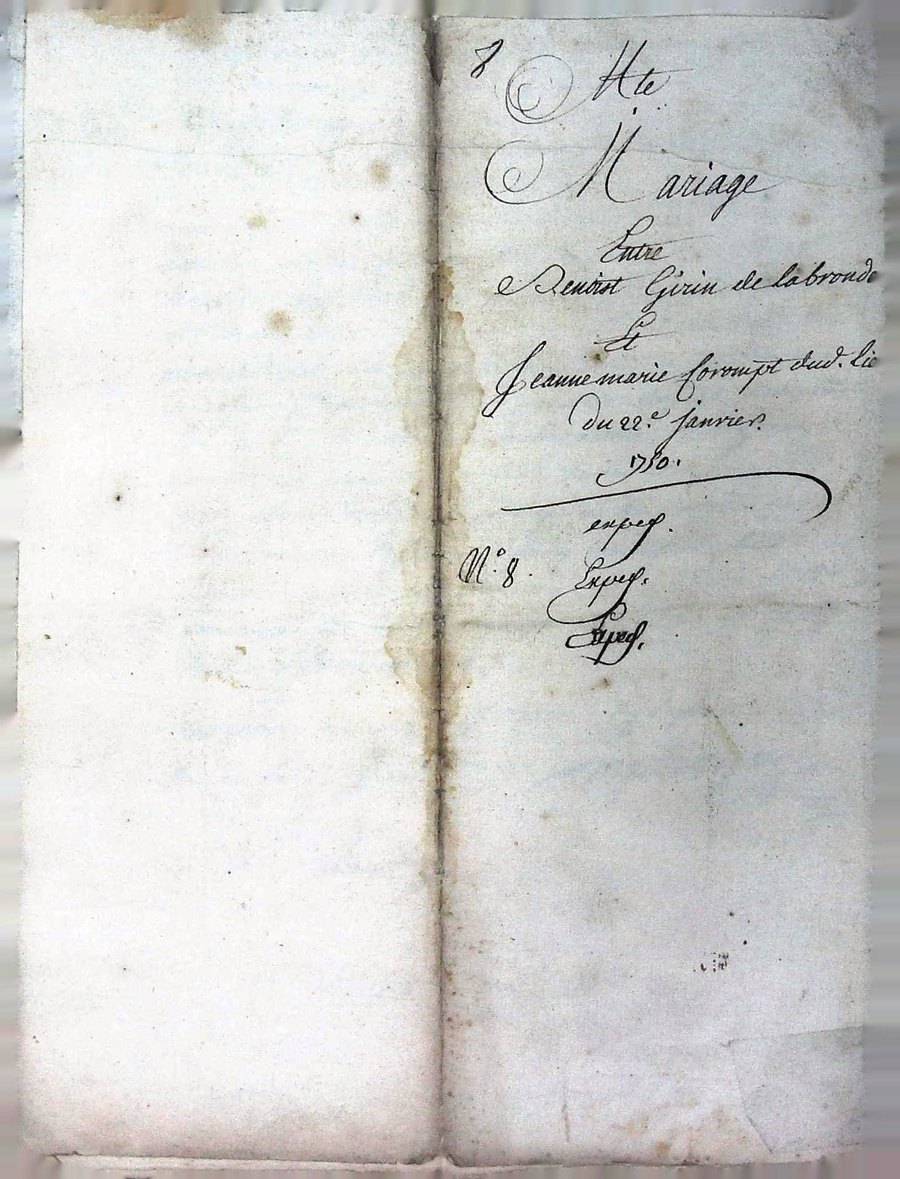 8
Mte
Mariage
Entre
Benoist Girin de labronde
Et
Jeanne marie Corompt dud. lie
du 22e. janvier.
1750.
exped.
N.o 8.
Exped.
Exped.